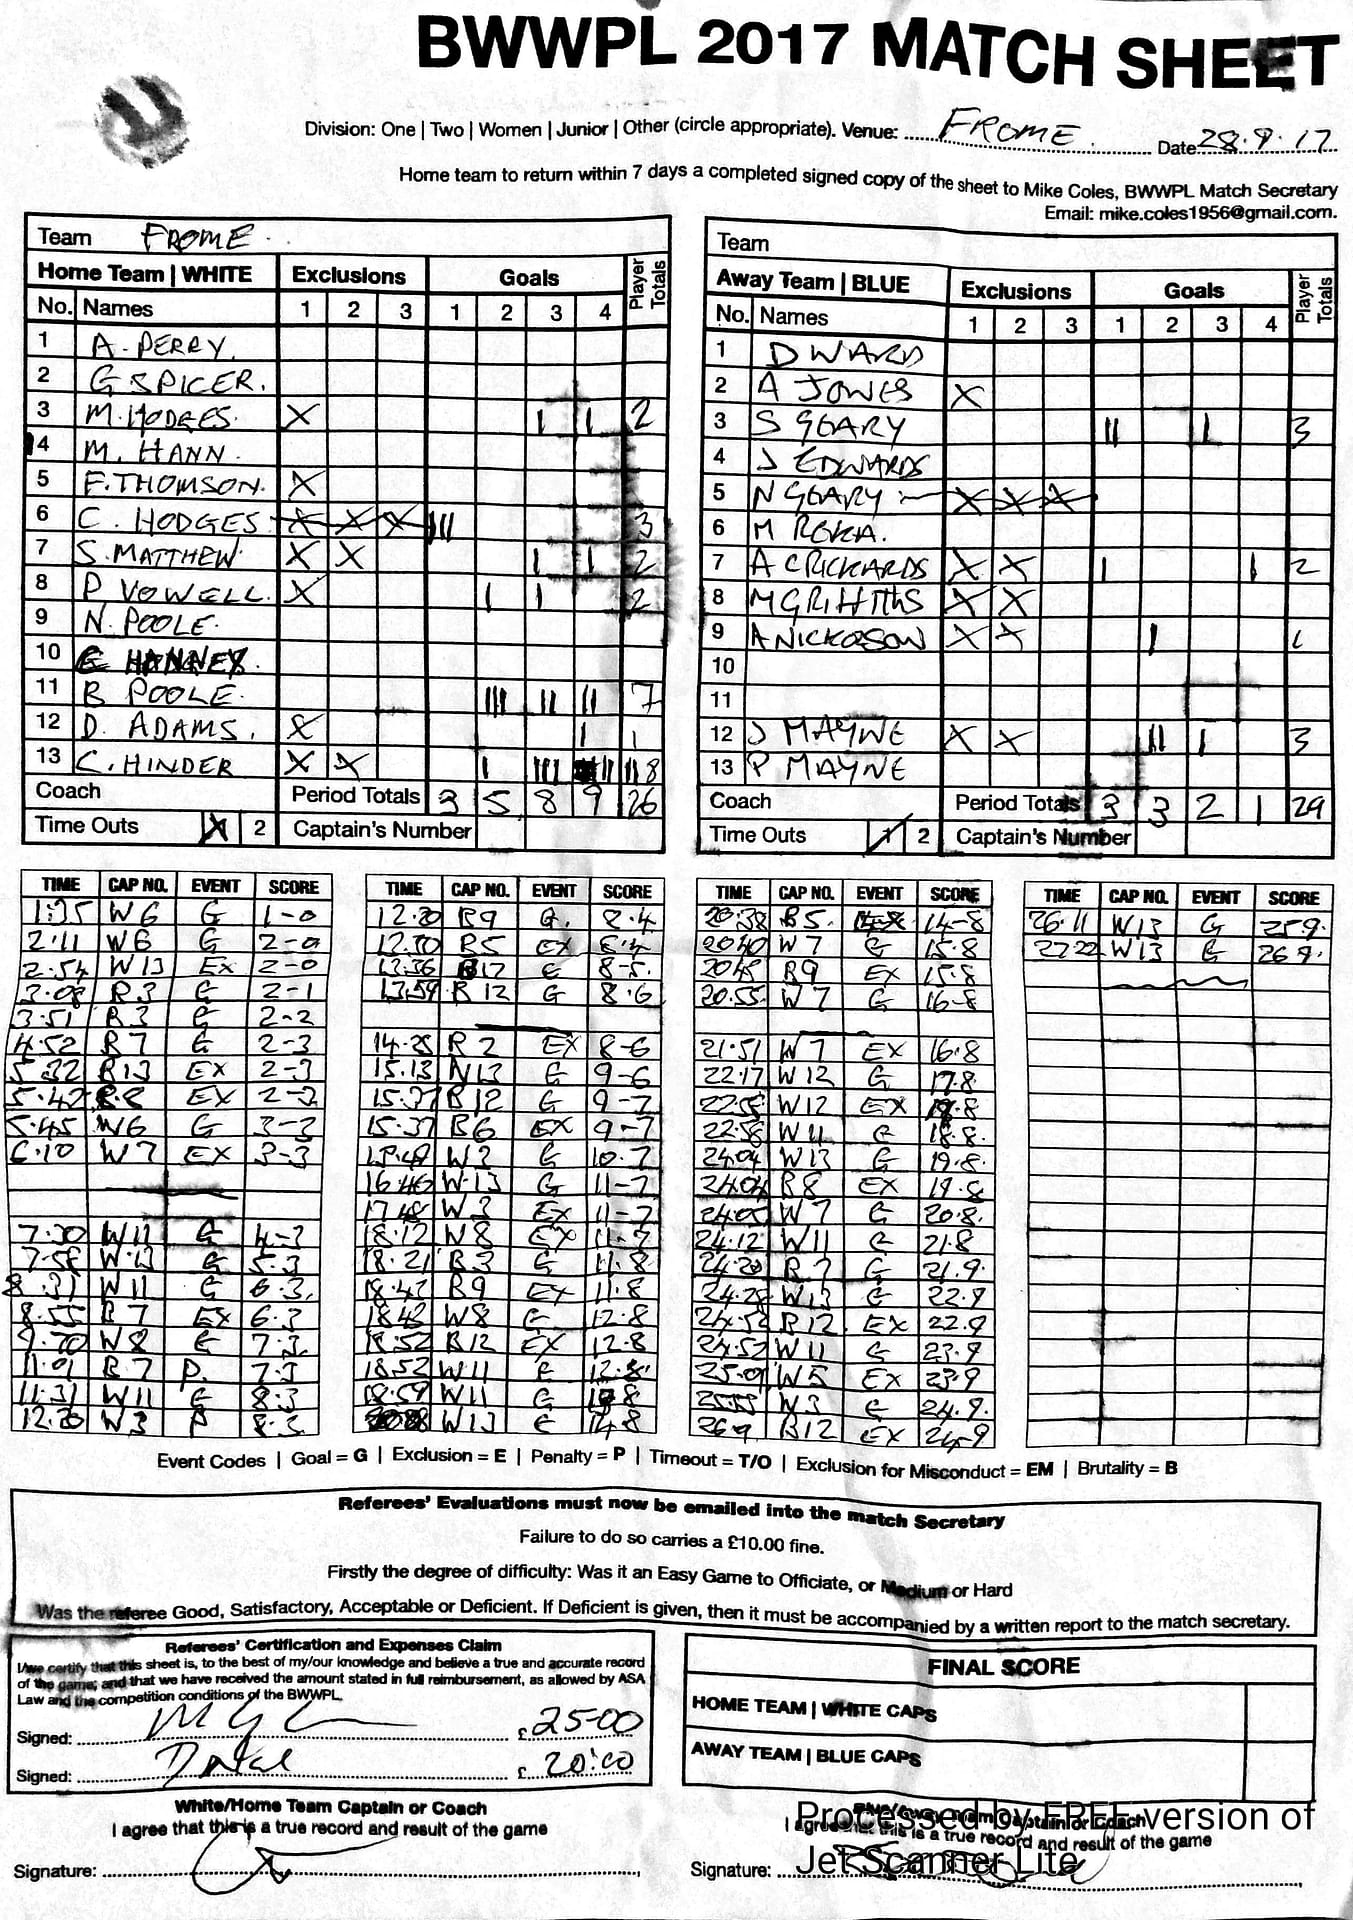 BWWPL 2017 MATCH SHEET
Division: One | Two | Women | Junior | Other (circle appropriate). Venue: FROME Date 28.9.17
Home team to return within 7 days a completed signed copy of the sheet to Mike Coles, BWWPL Match Secretary
Email: mike.coles1956@gmail.com.
Team FROME
Home Team | WHITE Exclusions Goals Player Totals
No. Names 1 2 3 1 2 3 4
1 A. PERRY.
2 G SPICER.
3 M. HODGES. X I I 2
4 M. HANN.
5 F. THOMSON. X
6 C. HODGES X X X III 3
7 S. MATTHEW X X I I 2
8 P VOWELL. X I I 2
9 N. POOLE.
10 HANNEY.
11 B POOLE. III II II 7
12 D. ADAMS. X I 1
13 C. HINDER X X I III 8
Coach Period Totals 3 5 8 9 26
Time Outs 1 2 Captain's Number
Team
Away Team | BLUE Exclusions Goals Player Totals
No. Names 1 2 3 1 2 3 4
1 D WARD
2 A JONES X
3 S GEARY II I 3
4 J EDWARDS
5 N GEARY X X X
6 M ROKA.
7 A CRICKARDS X X I I 2
8 M GRIFFITHS X X
9 A NICKOLSON X X I 1
10
11
12 J MAYNE X X II I 3
13 P MAYNE
Coach Period Totals 3 3 2 1 29
Time Outs 1 2 Captain's Number
TIME CAP NO. EVENT SCORE
1:35 W6 G 1-0
2:11 W6 G 2-0
2:54 W13 EX 2-0
3:08 B3 G 2-1
3:51 B3 G 2-2
4:52 B7 G 2-3
5.32 B13 EX 2-3
5.42 B8 EX 2-3
5.45 W6 G 3-3
6.10 W7 EX 3-3
7:30 W11 G 4-3
7:58 W13 G 5.3
8:31 W11 G 6.3.
8:55 B7 EX 6.3
9.70 W8 G 7.3
11.01 B.7 P. 7.3
11.31 W11 G 8.3
12.20 W3 P 8.3
TIME CAP NO. EVENT SCORE
12.20 B9 G. 8.4
12.30 B5 EX 8.4
13.36 B12 G 8-5.
13.59 B12 G 8.6
14.28 B2 EX 8-6
15.13 W13 G 9-6
15.37 B12 G 9-7
15.37 B6 EX 9-7
15.49 W3 G 10.7
16.46 W.13 G 11-7
17.48 W3 EX 11-7
18.12 W8 EX 11.7
18.21 B3 G 11.8
18.43 B9 EX 11.8
18.48 W8 G 12.8
18.52 B12 EX 12.8
18.52 W11 G 12.8
18.59 W11 G
W13 G 14.8
TIME CAP NO. EVENT SCORE
20.38 B5 14-8
20.40 W7 G 15.8
20.48 B9 EX 15.8
20.55. W7 G 16-8
21.51 W7 EX 16.8
22.17 W12 G 17.8
22.58 W12 EX
22.58 W11 G 18.8.
24.04 W13 G 19.8.
24.04 B8 EX 19.8
24.05 W7 G 20.8.
24.12 W11 G 21.8
24.20 B.7 G 21.9.
24.28 W13 G 22.9
24.52 B12. EX 22.9
24.52 W11 G 23.9
25.01 W5 EX 23.9
25.55 W3 G 24.9.
26.9 B12 EX 24-9
TIME CAP NO. EVENT SCORE
26.11 W13 G 25 9.
27.22 W13 G 26 9.
Event Codes | Goal = G | Exclusion = E | Penalty = P | Timeout = T/O | Exclusion for Misconduct = EM | Brutality = B
Referees' Evaluations must now be emailed into the match Secretary
Failure to do so carries a £10.00 fine.
Firstly the degree of difficulty: Was it an Easy Game to Officiate, or Medium or Hard
Was the referee Good, Satisfactory, Acceptable or Deficient. If Deficient is given, then it must be accompanied by a written report to the match secretary.
Referees' Certification and Expenses Claim
I/we certify that this sheet is, to the best of my/our knowledge and believe a true and accurate record
of the game; and that we have received the amount stated in full reimbursement, as allowed by ASA
Law and the competition conditions of the BWWPL.
Signed: £ 25-00
Signed: £ 20:00
FINAL SCORE
HOME TEAM | WHITE CAPS
AWAY TEAM | BLUE CAPS
White/Home Team Captain or Coach
I agree that this is a true record and result of the game
Signature:
Blue/Away Team Captain or Coach
I agree that this is a true record and result of the game
Signature:
Processed by FREE version of
Jet Scanner Lite